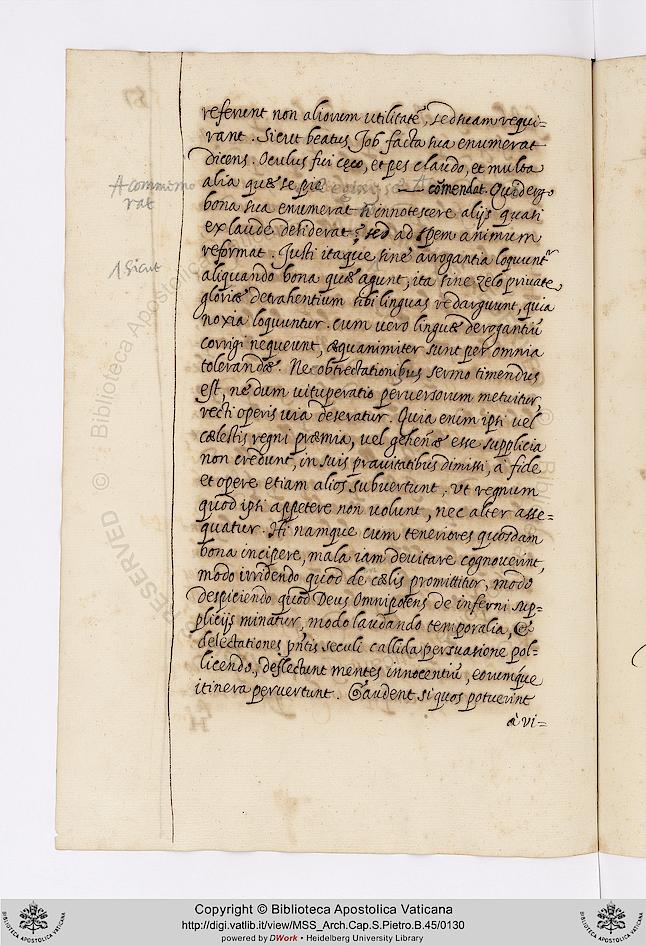 referunt non aliorum utilitatē, sed suam requi=
rant. Sicut beatus Job facta sua enumerat
dicens. Oculus fui cęco, et pes claudo, et multa
alia quæ se pie comēdat. Quod ergo
A commemo
rat
bona sua enumerat innotescere alijs quasi
ex laude desiderat, sed ad spem animum
reformat. Justi itaque sine arrogantia loquunt
A Sicut
aliquando bona quæ agunt, ita sine zelo privatę
gloriæ detrahentium sibi linguas redarguunt, quia
noxia loquuntur. cum vero linguæ derogantiū
corrigi nequeunt, æquanimiter sunt per omnia
tolerandæ. Nec obtrectationibus sermo timendus
est, ne dum vituperatio perversorum metuitur,
recti operis via deseratur. Quia enim ipsi vel
cælestis regni præmia, vel gehēnæ esse supplicia
non credunt, in suis pravitatibus dimissi, a fide
et opere etiam alios subvertunt, ut regnum
quod ipsi appetere non volunt, nec alter asse=
quatur. Hi namque cum teneriores quosdam
bona incipere, mala iam devitare cognoverint,
modo irridendo quod de cælis promittitur, modo
despiciendo quod Deus Omnipotens de inferni sup=
plicijs minatur, modo laudando temporalia, &
delectationes pn̄tis seculi callida persuasione pol=
licendo, deflectunt mentes innocentiū, eorumque
itinera pervertunt. Gaudent si quos potuerint
à vi=
RESERVED © Biblioteca Apostolica
Copyright © Biblioteca Apostolica Vaticana
http://digi.vatlib.it/view/MSS_Arch.Cap.S.Pietro.B.45/0130
powered by DWork • Heidelberg University Library
BIBLIOTECA APOSTOLICA VATICANA
BIBLIOTECA APOSTOLICA VATICANA